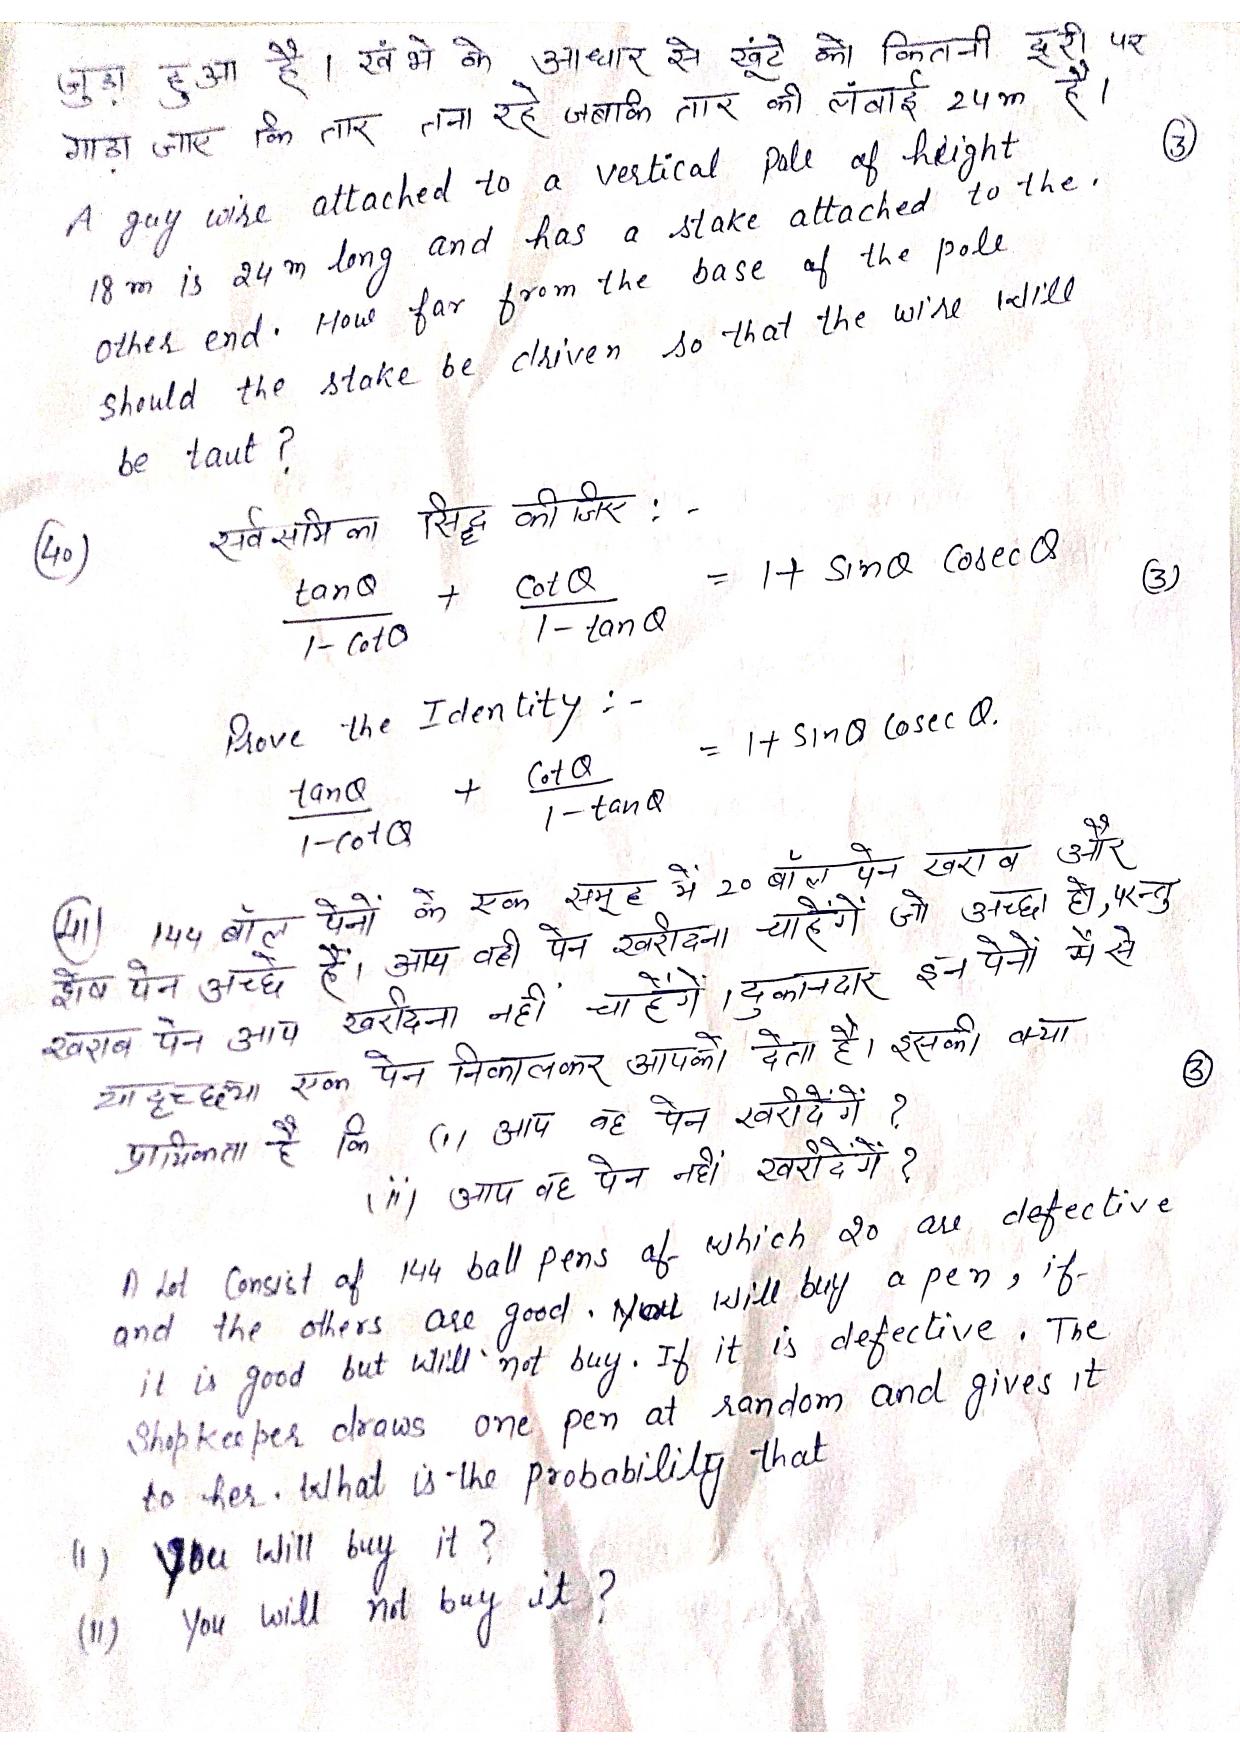 जुड़ा हुआ है। खंभे के आधार से खूंटे को कितनी दूरी पर
गाड़ा जाए कि तार तना रहे जबकि तार की लंबाई 24m है।
(3)
A guy wire attached to a vertical pole of height
18 m is 24 m long and has a stake attached to the.
other end. How far from the base of the pole
should the stake be driven so that the wire will
be taut?
(40) सर्वसमिका सिद्ध कीजिए :-
tanθ/1-cotθ + cotθ/1-tanθ = 1+ sinθ cosecθ (3)
Prove the Identity :-
tanθ/1-cotθ + cotθ/1-tanθ = 1+ sinθ cosecθ.
(41) 144 बॉल पेनों के एक समूह में 20 बॉल पेन खराब और
शेष पेन अच्छे हैं। आप वही पेन खरीदना चाहेंगें जो अच्छा हो, परन्तु
खराब पेन आप खरीदना नहीं चाहेंगें। दुकानदार इन पेनों में से
यादृच्छया एक पेन निकालकर आपको देता है। इसकी क्या
प्रायिकता है कि (i) आप वह पेन खरीदेंगें ? (3)
(ii) आप वह पेन नहीं खरीदेंगें ?
A Lot Consist of 144 ball pens of which 20 are defective
and the others are good. You will buy a pen, if
it is good but will not buy. If it is defective. The
Shopkeeper draws one pen at random and gives it
to her. What is the probability that
(i) You will buy it?
(ii) You will not buy it?